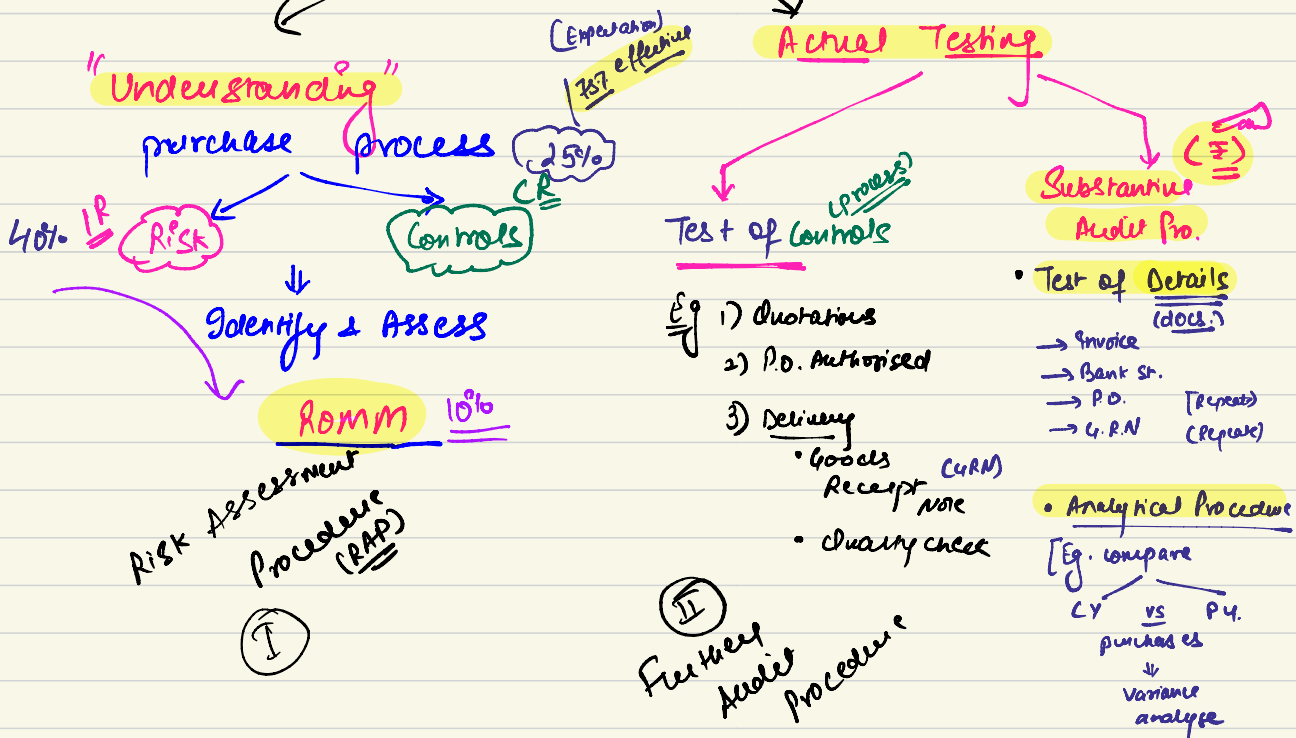 "Understanding"
purchase process
25%
(Expectation)
75% effective
40% IR Risk
Controls CR
⇓
Identify & Assess
ROMM 10%
Risk Assessment
Procedure
(RAP)
I
Actual Testing
Test of Controls
(process)
Eg 1) Quotations
2) P.O. Authorised
3) Delivery
• Goods
Receipt (GRN)
Note
• Quality check
II
Further
Audit
Procedure
(₹)
Substantive
Audit Pro.
• Test of Details
(docs.)
→ Invoice
→ Bank St.
→ P.O. (Repeat)
→ G.R.N (Repeat)
• Analytical Procedure
[Eg. compare
CY vs PY.
purchases
⇓
Variance
analyse